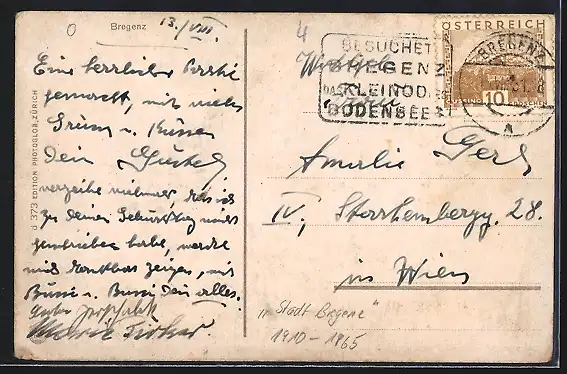 Bregenz
13./VIII.
0
4
Eine herrliche Partie
gemacht, mit vielen
Grüssen u. Küssen
Dein Gustl,
verzeihe vielmals, dass ich
zu deinem Geburtstag nicht
geschrieben habe, werde
mich dankbar zeigen, mit
Bussi u. Bussi Dein alles.
d 373 EDITION PHOTOGLOB, ZÜRICH
BESUCHET
BREGENZ
DAS KLEINOD DES
BODENSEES
ÖSTERREICH
10
GROSCHEN
BREGENZ
Amalie Gerl
IV, Starhembergg. 28.
in Wien
"Stadt Bregenz"
1910-1965